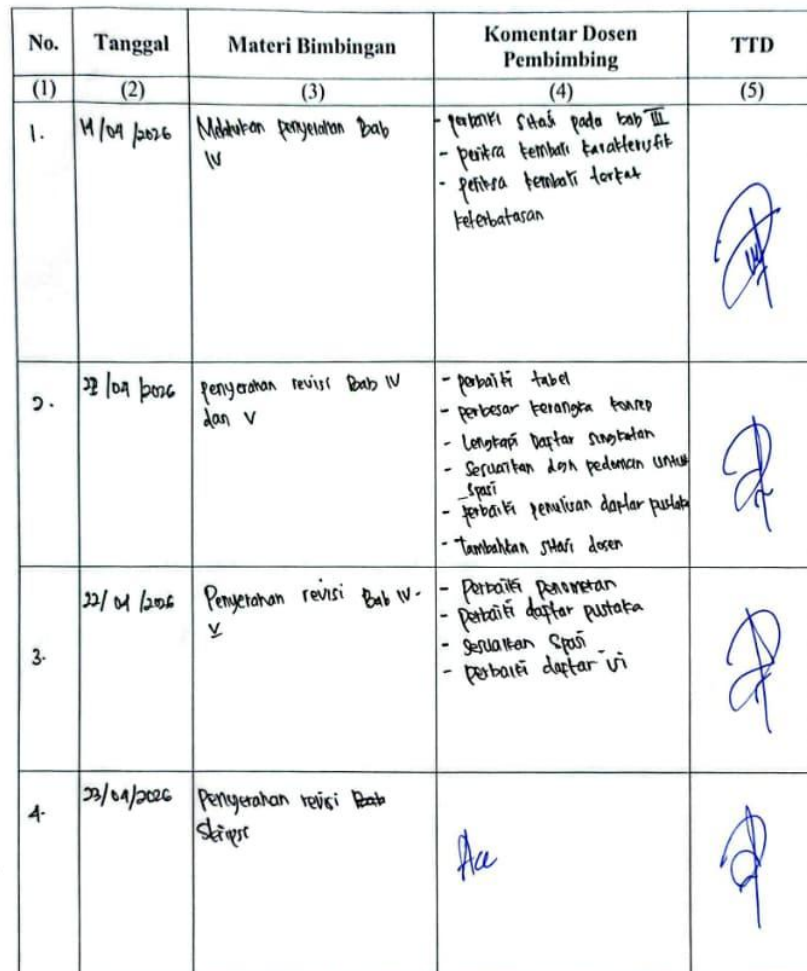 No. Tanggal Materi Bimbingan Komentar Dosen Pembimbing TTD
(1) (2) (3) (4) (5)
1. 14/04/2026 Melakukan penyerahan Bab
IV
- perbaiki sitasi pada bab III
- periksa kembali karakteristik
- periksa kembali terkait
keterbatasan
2. /04/2026 penyerahan revisi Bab IV
dan V
- perbaiki tabel
- perbesar kerangka konsep
- Lengkapi Daftar singkatan
- Sesuaikan dgn pedoman untuk
spasi
- perbaiki penulisan daftar pustaka
- Tambahkan sitasi dosen
3. 22/04/2026 Penyerahan revisi Bab IV-
V
- Perbaiki penomoran
- Perbaiki daftar pustaka
- Sesuaikan spasi
- perbaiki daftar isi
4. 23/04/2026 Penyerahan revisi Bab
Skripsi
Acc